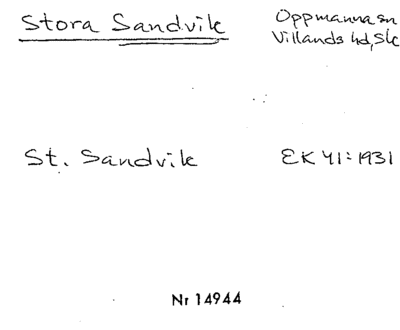 Stora Sandvik
Oppmanna sn
Villands hd, Sk
St. Sandvik
EK 41:1931
Nr 14944